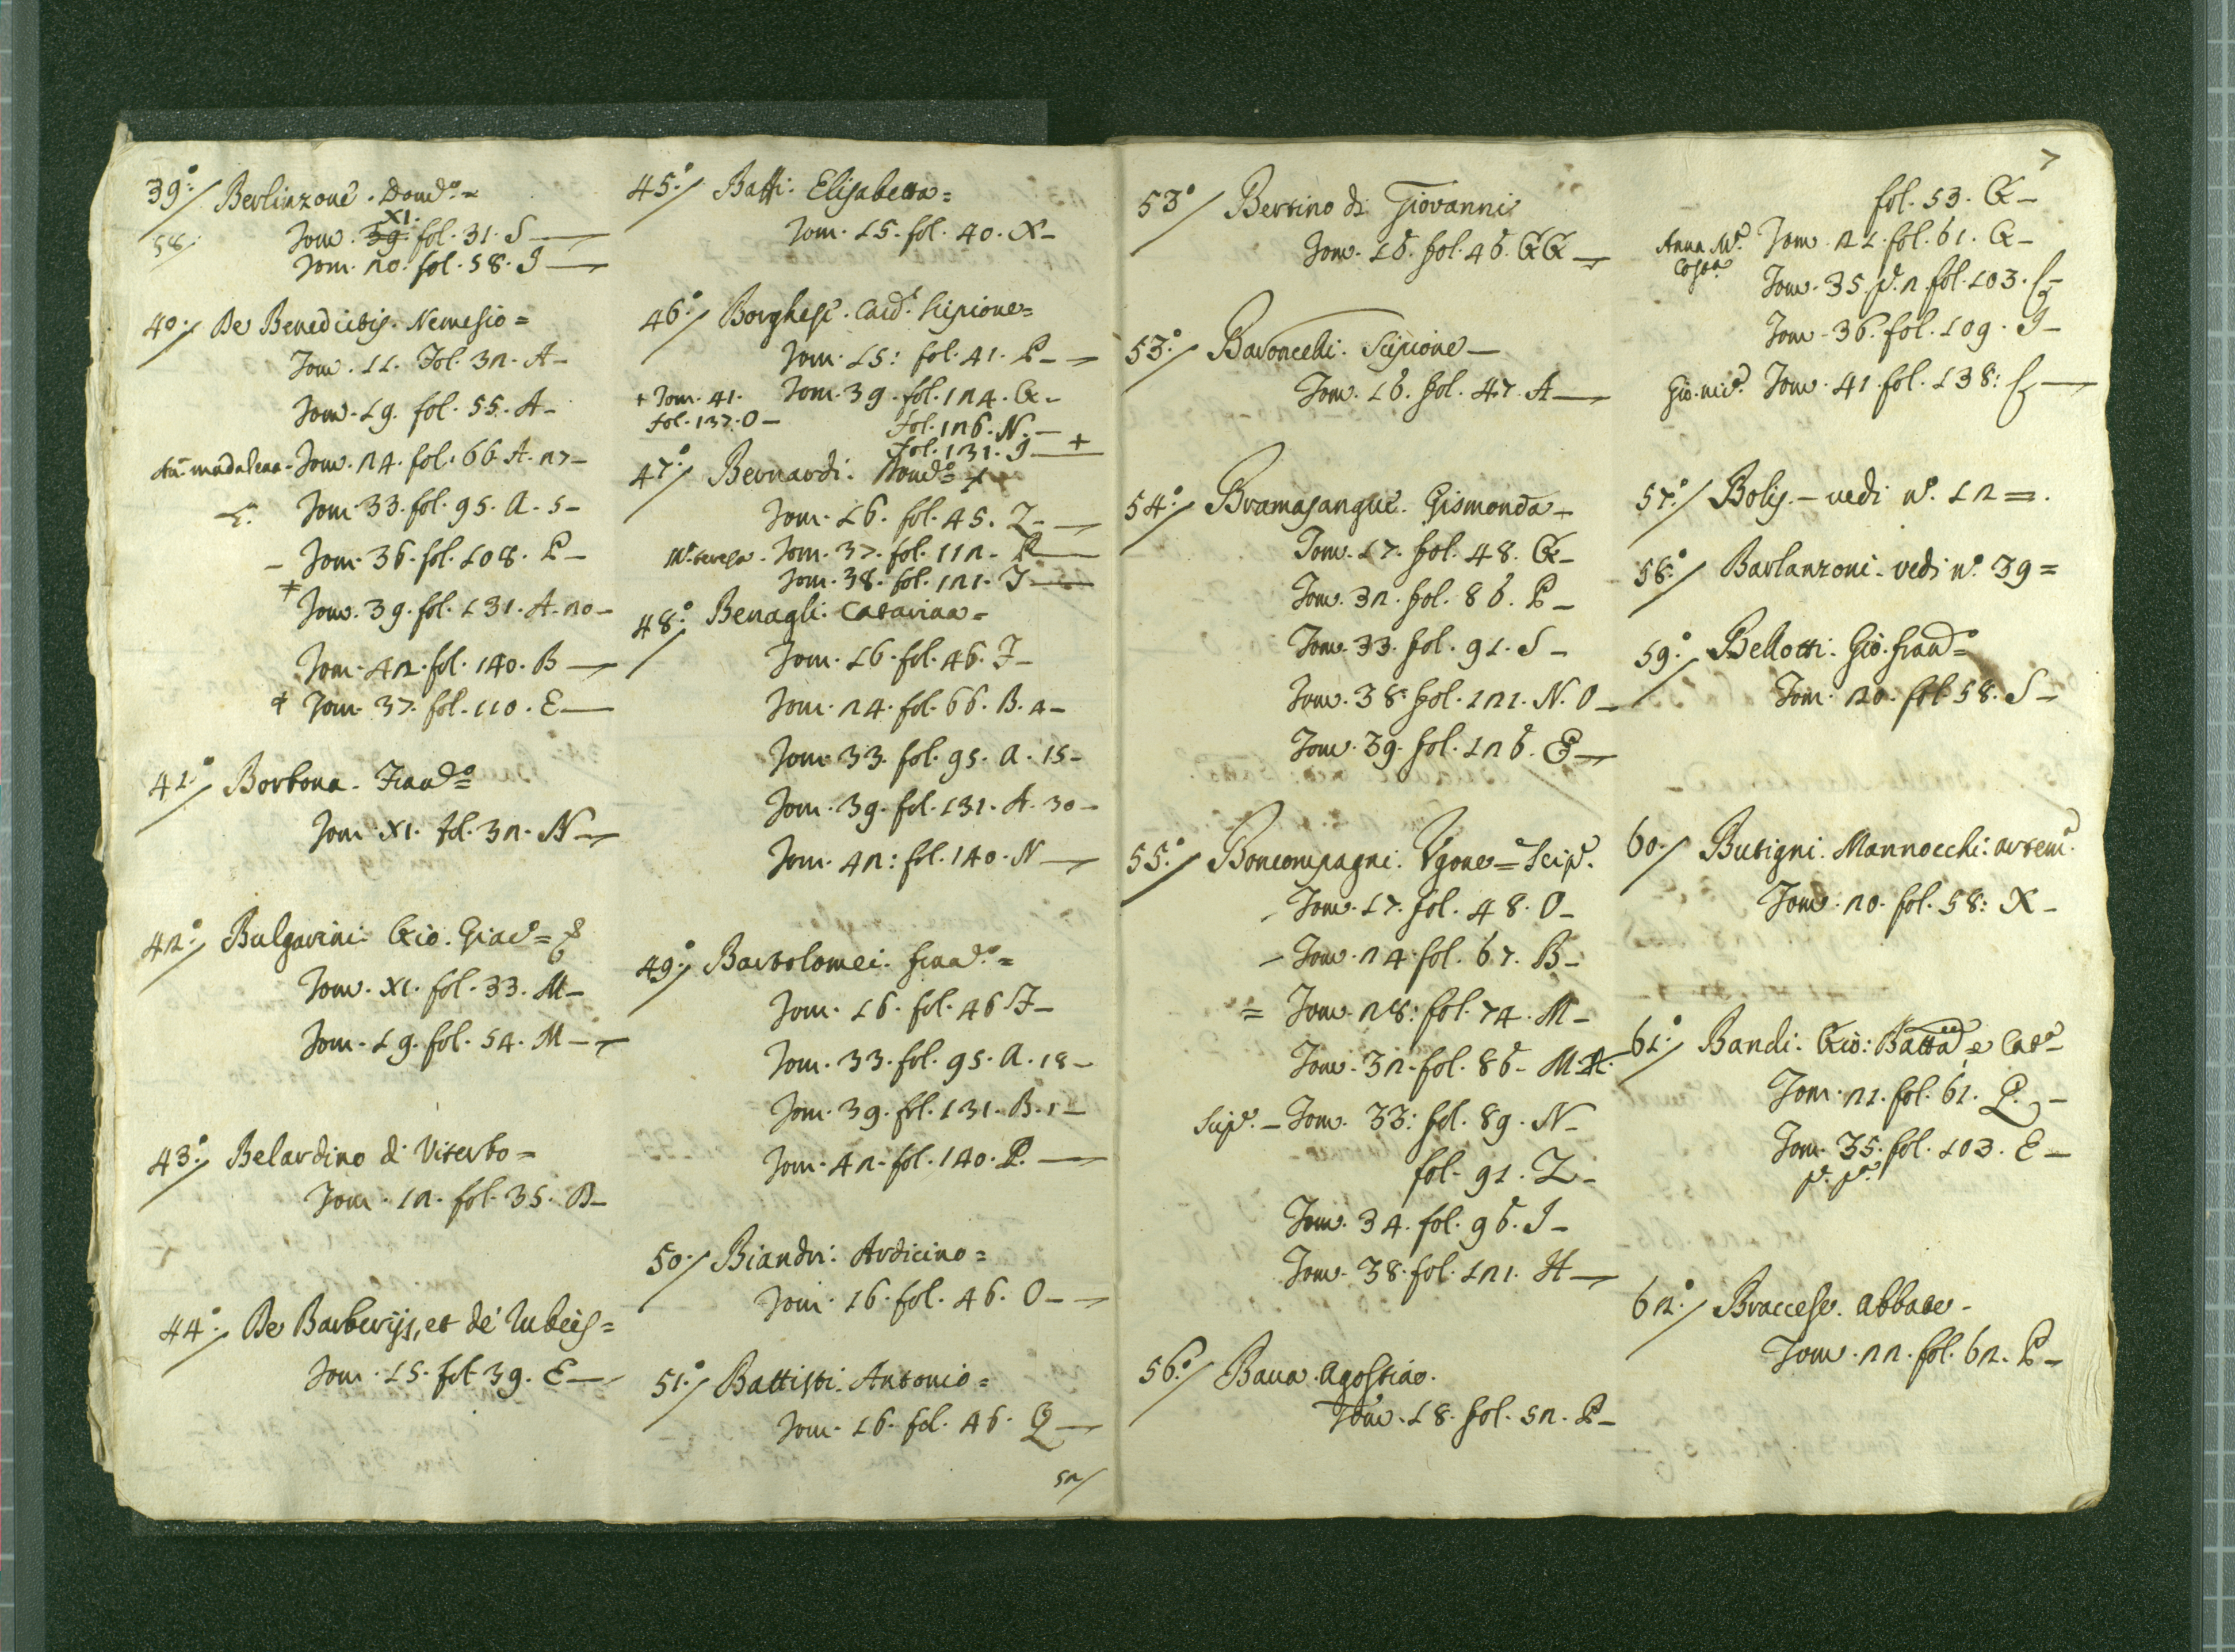 39:°/ Berlinzone. Domco. =
XI.
58. Tom. 39. fol. 31. S —
Tom. 20. fol. 58. I —
40:/ De Benedictis. Nemesio =
Tom. 11. Fol. 32. A —
Tom. 19. fol. 55. A —
madalena - Tom. 24. fol. 66 A. 27 —
Tom. 33. fol. 95. A. 5 —
— Tom. 36. fol. 108. P —
+ Tom. 39. fol. 131. A. 20 —
Tom. 42. fol. 140. B —
+ Tom. 37. fol. 110. E —
41:°/ Borbona. Franco =
Tom. XI. fol. 32. N —
42:°/ Bulgarini: Gio. Giaco =
Tom. XI. fol. 33. M —
Tom. 19. fol. 54. M —
43:°/ Belardino di Viterbo =
Tom. 12. fol. 35. B —
44:°/ De Barberijs, et de Rubeis =
Tom. 15. fol. 39. E —
45:°/ Batti. Elisabetta =
Tom. 15. fol. 40. X —
46:°/ Borghese. Card. Scipione =
Tom. 15: fol. 41. P —
+ Tom. 41. Tom. 39. fol. 124. Q —
fol. 137. O — fol. 126. N. —
fol. 131. I — +
47:°/ Bernardi. Domco
Tom. 16. fol. 45. Z —
Ma. teresa. Tom. 37. fol. 112. R —
Tom. 38. fol. 121. I —
48:°/ Benagli: Catarina =
Tom. 16. fol. 46. F —
Tom. 24. fol. 66. B. 4 —
Tom. 33. fol. 95. A. 15 —
Tom. 39. fol. 131. A. 30 —
Tom. 42: fol. 140. N —
49:°/ Bartolomei. franco. =
Tom. 16. fol. 46 F —
Tom. 33. fol. 95. A. 18 —
Tom. 39. fol. 131. B. 1 —
Tom. 42. fol. 140. P. —
50:/ Biandri: Ardicino =
Tom. 16. fol. 46. O —
51:°/ Battisti: Antonio =
Tom. 16. fol. 46. Q —
52/
7
53:°/ Bertino di Giovanni
Tom. 16. fol. 46. QQ —
53:°/ Baroncelli. Scipione —
Tom. 16. fol. 47. A —
54:°/ Bramasangue. Gismonda —
Tom. 17. fol. 48. Q —
Tom. 32. fol. 86. P —
Tom. 33. fol. 91. S —
Tom. 38. fol. 121. N. O —
Tom. 39. fol. 126. E —
55:°/ Boncompagni. Vgone = Scipe.
— Tom. 17. fol. 48. O —
— Tom. 24. fol. 67. B —
= Tom. 28: fol. 74. M —
Tom. 32. fol. 86 — M
Scipe. — Tom. 33: fol. 89. N —
fol. 91. Z —
Tom. 34. fol. 96. I —
Tom. 38. fol. 121. H —
56:°/ Baua. Agostino.
Tom. 18. fol. 52. P —
fol. 53. Q —
Anna Ma. Tom. 21. fol. 61. Q —
Tom. 35. p. 2 fol. 103. —
Tom. 36. fol. 109. I —
Tom. 41. fol. 138: —
57:°/ Bolis. — vedi n°. 12 =.
58:°/ Barlanzoni. vedi n°. 39 =
59:°/ Bellotti: Gio. franco =
Tom. 20. fol. 58. S —
60:/ Butigni. Mannocchi: artem.
Tom. 20. fol. 58: X —
61:°/ Bandi. Gio: Batta e Cat
Tom. 21. fol. 61. P. —
Tom. 35. fol. 103. E —
p. pa.
62:°/ Braccese. abbate —
Tom. 22. fol. 62. P —